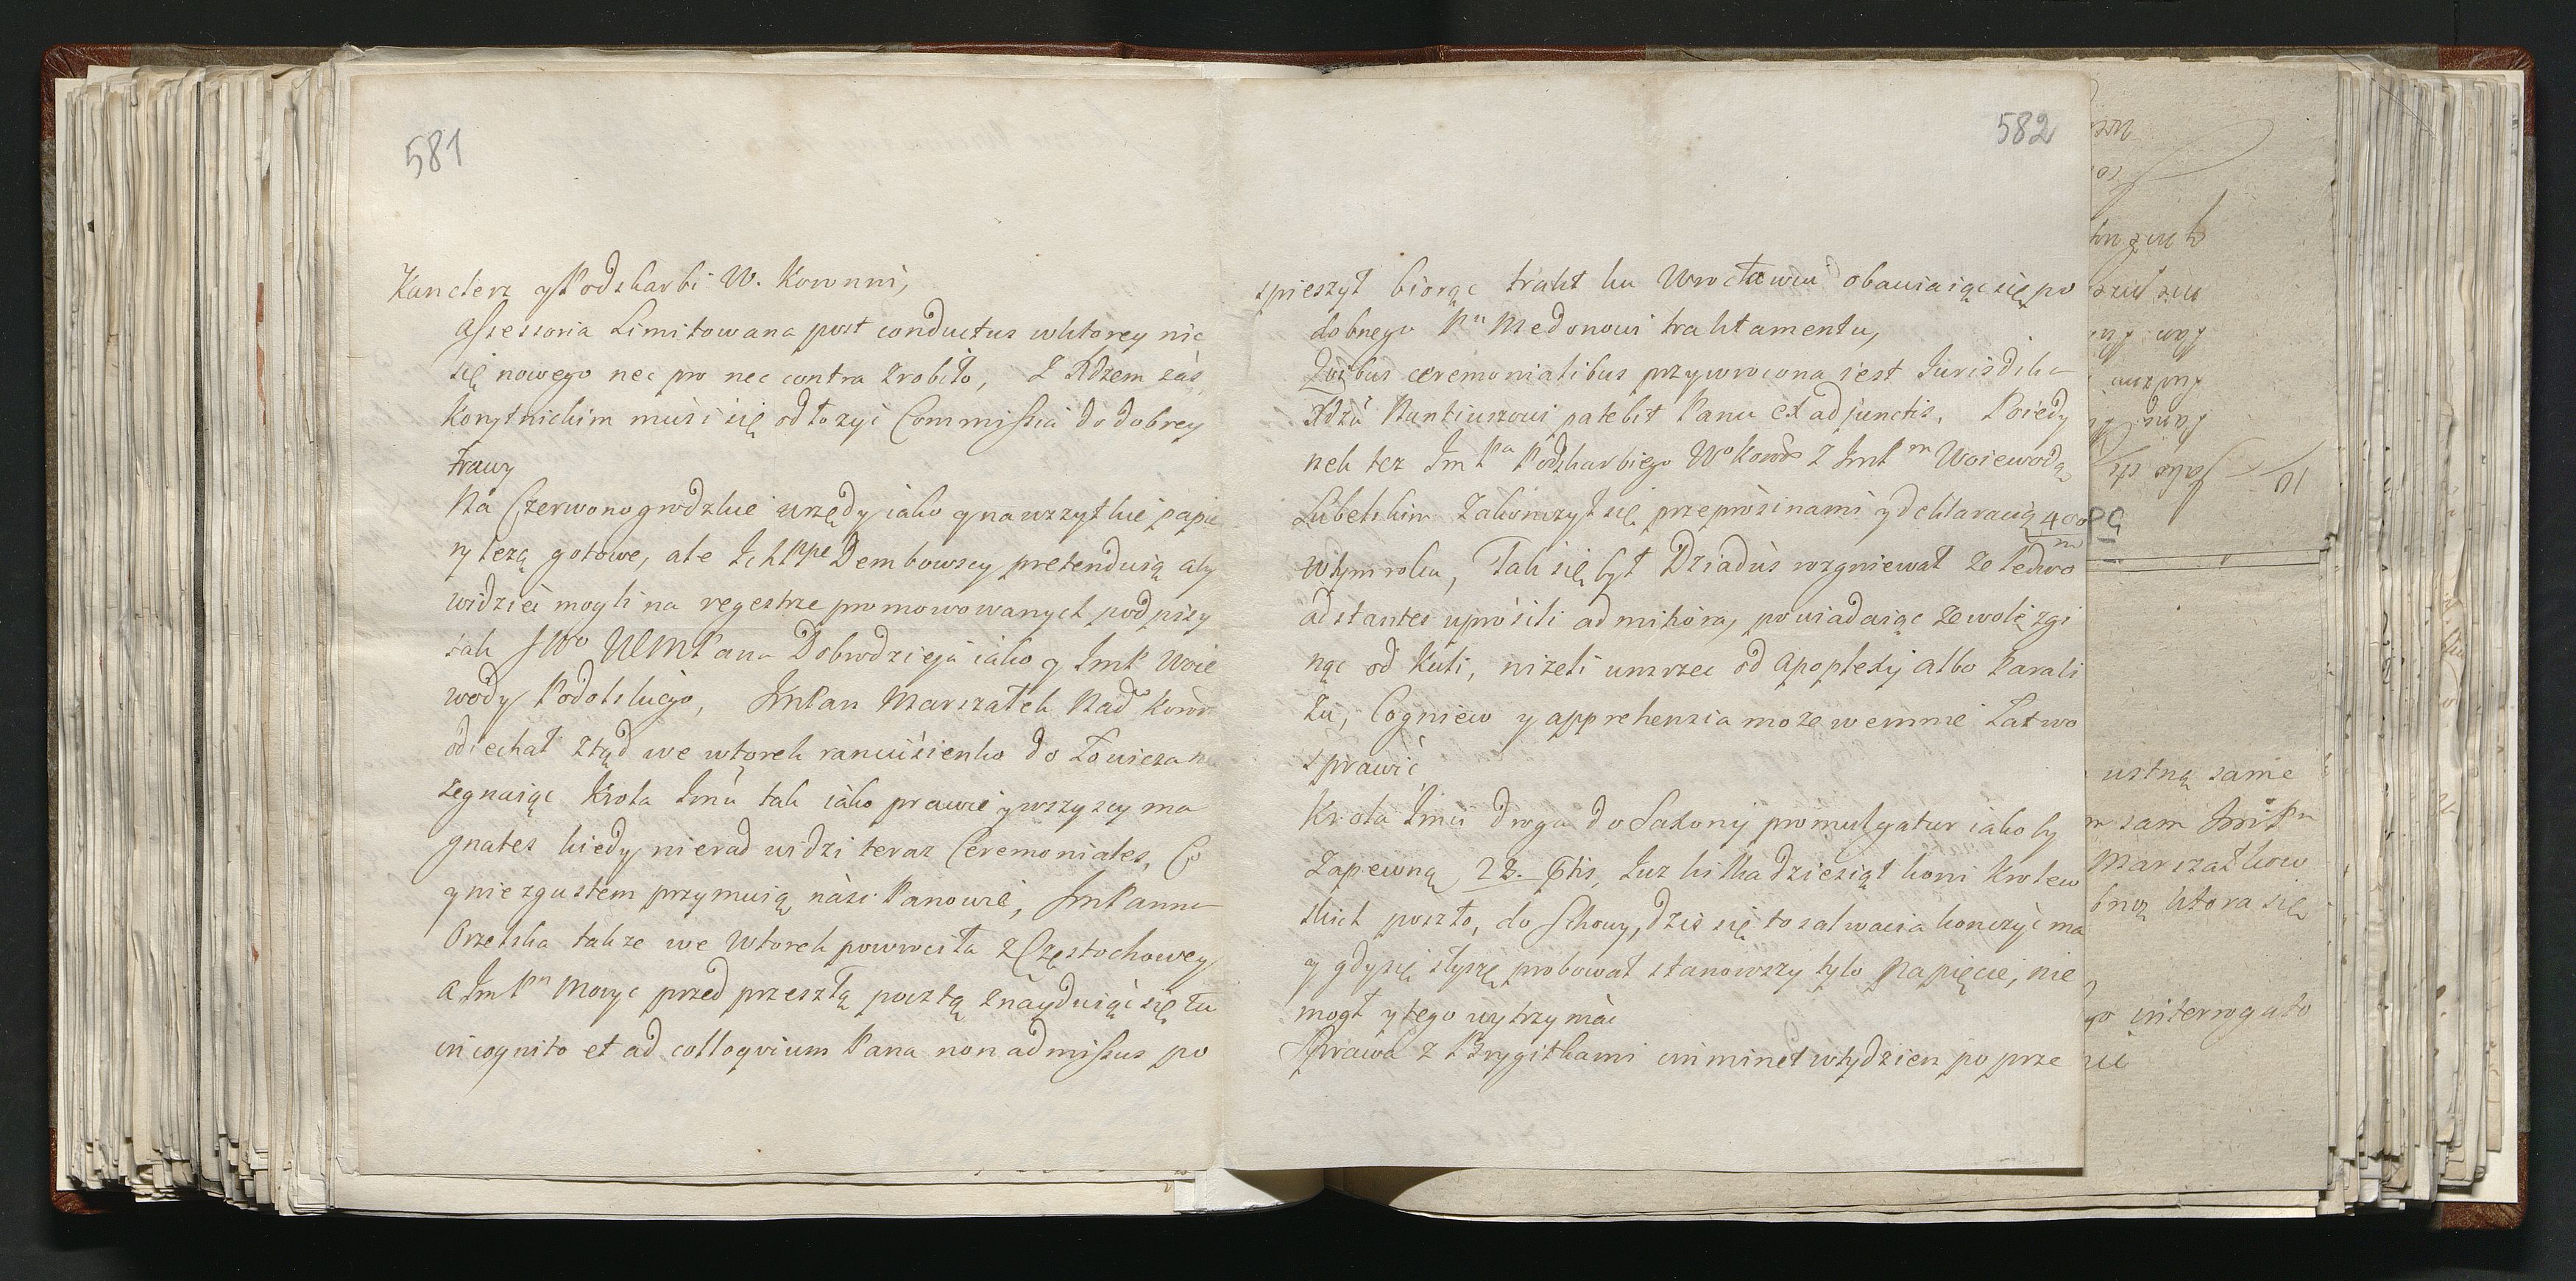 581
Kanclerz y Podskarbi W. Koronni,
Assessoria Limitowana post conductus wktorey nic
się nowego nec pro nec contra zrobiło, Z Xdzem zaś
Korytnickim musi się odłozyć Commissia do dobrey
Trawy
Na Czerwonogrodzkie urzędy iako y na wszytkie papie
ry lezą gotowe, ale Dembowscy pretenduią aby
widzieć mogli na regestrze promowowanych podpisy
tak Pana Dobrodzieja iako y ImP Woie
wody Podolskiego, ImPan Marszałek Nad Koron
odiechał ztąd we wtorek raniusienko do Łowicza nie
zegnaiąc Krola Imci tak iako prawie y wszyscy ma
gnates kiedy nierad widzi teraz Ceremoniales, Co
y nie zgustem przymuią nasi Panowie, ImPanna
Orzelska takze we Wtorek powrociła z Częstochowey
a ImPn Moryc przed przeszłą pocztą znayduiąc się tu
incognito et ad colloqvium Pana non admissus po
582
spieszył biorąc trakt ku Wrocławiu obawiaiąc się po
dobnego Pn Medonowi traktamentu,
Qvibus ceremonialibus przywrocona iest Jurisdikc
Xdzu Nuntiuszowi patebit Panu ex adjunctis, Poiedy
nek tez ImPa Podskarbiego Wo Koron z ImPm Woiewodą
Lubelskim zakonczył się przeprosinami y deklaracią 400
m
w tym roku, Tak się był Dziaduś rozgniewał ze ledwo
adstantes uprosili ad mitiora, powiadaiąc ze wolę zgi
nąc od Kuli, nizeli umrzec od apoplexij albo Parali
zu, Co gniew y apprehensia moze wemnie łatwo
sprawić
Krola Imci droga do Saxonij promulgatur iakoby
zapewną 28. Xbris, Juz kilkadziesiąt koni Krolew
skich poszło, do Schowy, dzis się to salwacia konczyć ma
y gdy się słyszę probował stanowszy tylo na pięcie, nie
mogł y tego wytrzymać
Sprawa z Brygitkami imminet w tydzien po prze
ustną samę
m sam ImPn
Marszałkow
bną ktora się
go interrogato